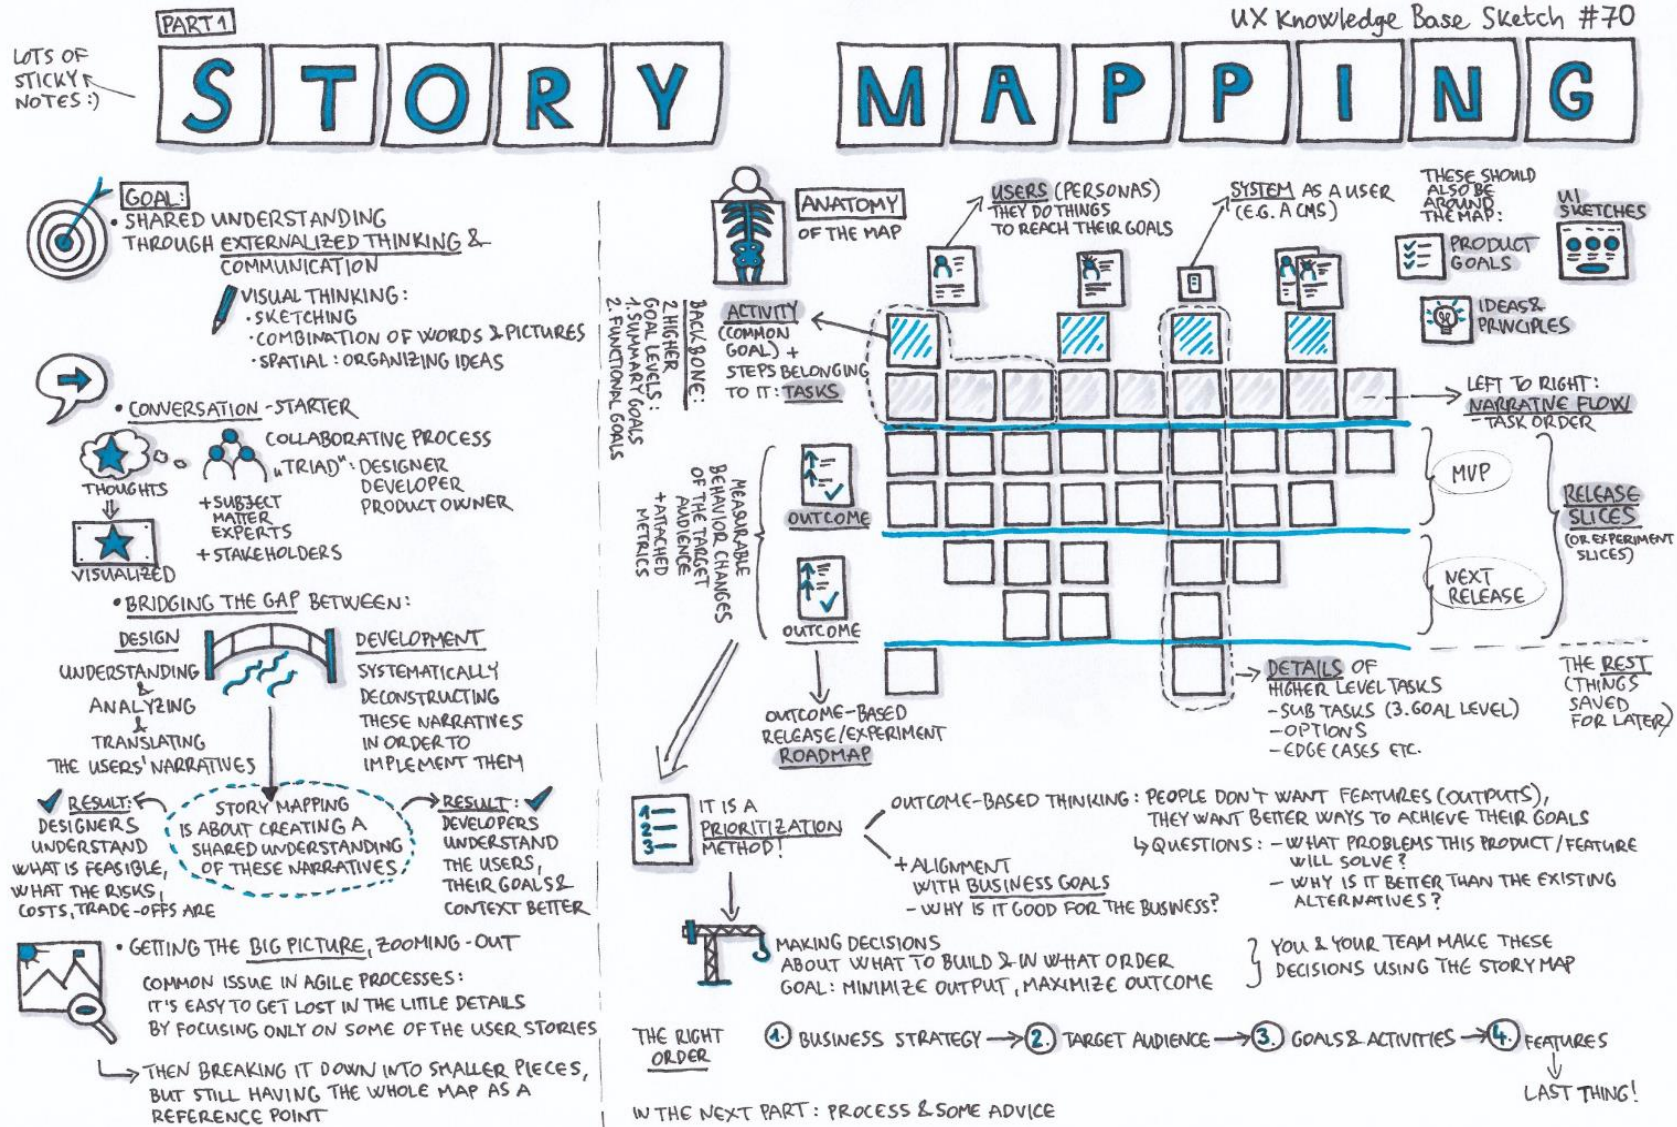 PART 1
UX Knowledge Base Sketch #70
LOTS OF
STICKY
NOTES :)
STORY MAPPING
GOAL:
• SHARED UNDERSTANDING
THROUGH EXTERNALIZED THINKING &
COMMUNICATION
VISUAL THINKING:
• SKETCHING
• COMBINATION OF WORDS & PICTURES
• SPATIAL: ORGANIZING IDEAS
• CONVERSATION - STARTER
THOUGHTS
VISUALIZED
COLLABORATIVE PROCESS
"TRIAD": DESIGNER
DEVELOPER
PRODUCT OWNER
+ SUBJECT
MATTER
EXPERTS
+ STAKEHOLDERS
• BRIDGING THE GAP BETWEEN:
DESIGN
UNDERSTANDING
&
ANALYZING
&
TRANSLATING
THE USERS' NARRATIVES
DEVELOPMENT
SYSTEMATICALLY
DECONSTRUCTING
THESE NARRATIVES
IN ORDER TO
IMPLEMENT THEM
STORY MAPPING
IS ABOUT CREATING A
SHARED UNDERSTANDING
OF THESE NARRATIVES
RESULT:
DESIGNERS
UNDERSTAND
WHAT IS FEASIBLE,
WHAT THE RISKS,
COSTS, TRADE-OFFS ARE
RESULT:
DEVELOPERS
UNDERSTAND
THE USERS,
THEIR GOALS &
CONTEXT BETTER
• GETTING THE BIG PICTURE, ZOOMING - OUT
COMMON ISSUE IN AGILE PROCESSES:
IT'S EASY TO GET LOST IN THE LITTLE DETAILS
BY FOCUSING ONLY ON SOME OF THE USER STORIES
THEN BREAKING IT DOWN INTO SMALLER PIECES,
BUT STILL HAVING THE WHOLE MAP AS A
REFERENCE POINT
ANATOMY
OF THE MAP
USERS (PERSONAS)
THEY DO THINGS
TO REACH THEIR GOALS
SYSTEM AS A USER
(E.G. A CMS)
THESE SHOULD
ALSO BE
AROUND
THE MAP:
UI
SKETCHES
PRODUCT
GOALS
IDEAS &
PRINCIPLES
BACKBONE:
2 HIGHER
GOAL LEVELS:
1. SUMMARY GOALS
2. FUNCTIONAL GOALS
ACTIVITY
(COMMON
GOAL) +
STEPS BELONGING
TO IT: TASKS
LEFT TO RIGHT:
NARRATIVE FLOW
- TASK ORDER
MEASURABLE
BEHAVIOR CHANGES
OF THE TARGET
AUDIENCE
+ ATTACHED
METRICS
OUTCOME
OUTCOME
OUTCOME-BASED
RELEASE/EXPERIMENT
ROADMAP
MVP
NEXT
RELEASE
RELEASE
SLICES
(OR EXPERIMENT
SLICES)
THE REST
(THINGS
SAVED
FOR LATER)
DETAILS OF
HIGHER LEVEL TASKS
- SUB TASKS (3. GOAL LEVEL)
- OPTIONS
- EDGE CASES ETC.
1-
2-
3-
IT IS A
PRIORITIZATION
METHOD!
OUTCOME-BASED THINKING: PEOPLE DON'T WANT FEATURES (OUTPUTS),
THEY WANT BETTER WAYS TO ACHIEVE THEIR GOALS
QUESTIONS: - WHAT PROBLEMS THIS PRODUCT/FEATURE
WILL SOLVE?
- WHY IS IT BETTER THAN THE EXISTING
ALTERNATIVES?
+ ALIGNMENT
WITH BUSINESS GOALS
- WHY IS IT GOOD FOR THE BUSINESS?
MAKING DECISIONS
ABOUT WHAT TO BUILD & IN WHAT ORDER
GOAL: MINIMIZE OUTPUT, MAXIMIZE OUTCOME
YOU & YOUR TEAM MAKE THESE
DECISIONS USING THE STORY MAP
THE RIGHT
ORDER
1. BUSINESS STRATEGY → 2. TARGET AUDIENCE → 3. GOALS & ACTIVITIES → 4. FEATURES
LAST THING!
IN THE NEXT PART: PROCESS & SOME ADVICE